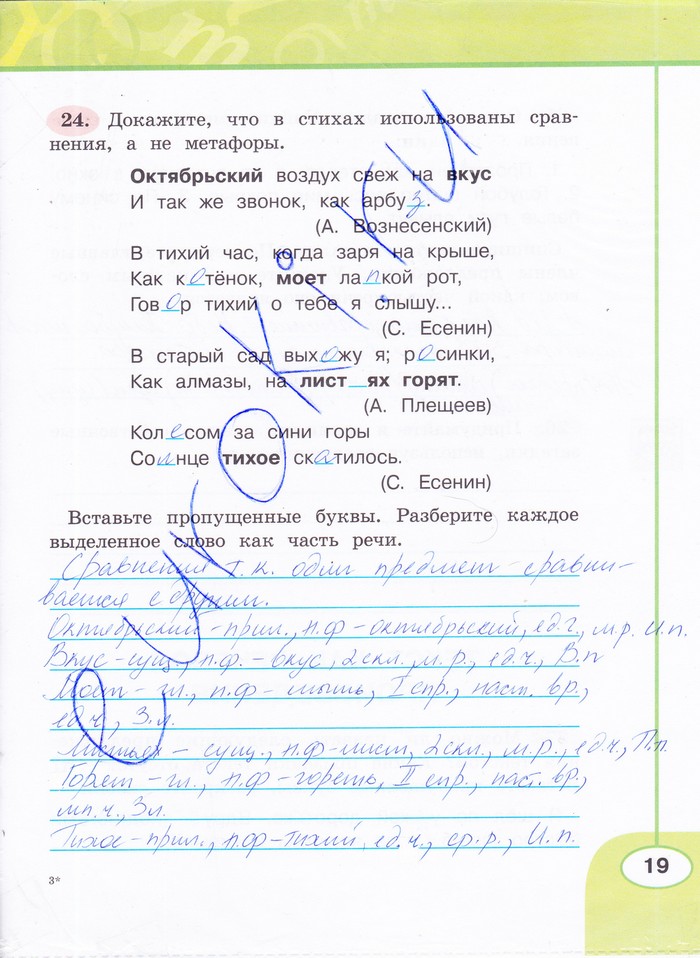 24. Докажите, что в стихах использованы срав-
нения, а не метафоры.
Октябрьский воздух свеж на вкус
И так же звонок, как арбуз.
(А. Вознесенский)
В тихий час, когда заря на крыше,
Как котёнок, моет лапкой рот,
Говор тихий о тебе я слышу...
(С. Есенин)
В старый сад выхожу я; росинки,
Как алмазы, на лист_ях горят.
(А. Плещеев)
Колесом за сини горы
Солнце тихое скатилось.
(С. Есенин)
Вставьте пропущенные буквы. Разберите каждое
выделенное слово как часть речи.
Сравнения т.к. один предмет сравни-
вается с другим.
Октябрьский - прил., н.ф - октябрьский, ед.ч., м.р. И.п.
Вкус - сущ., н.ф. - вкус, 2скл., м.р., ед.ч., В.п
Моет - гл., н.ф - мыть, I спр., наст. вр.,
ед.ч., 3.л.
Листьях - сущ., н.ф - лист, 2скл., м.р., ед.ч., П.п.
Горят - гл., н.ф - гореть, II спр., наст. вр.,
мн.ч., 3л.
Тихое - прил., н.ф - тихий, ед.ч., ср.р., И.п.
3*
19
euroki.ru